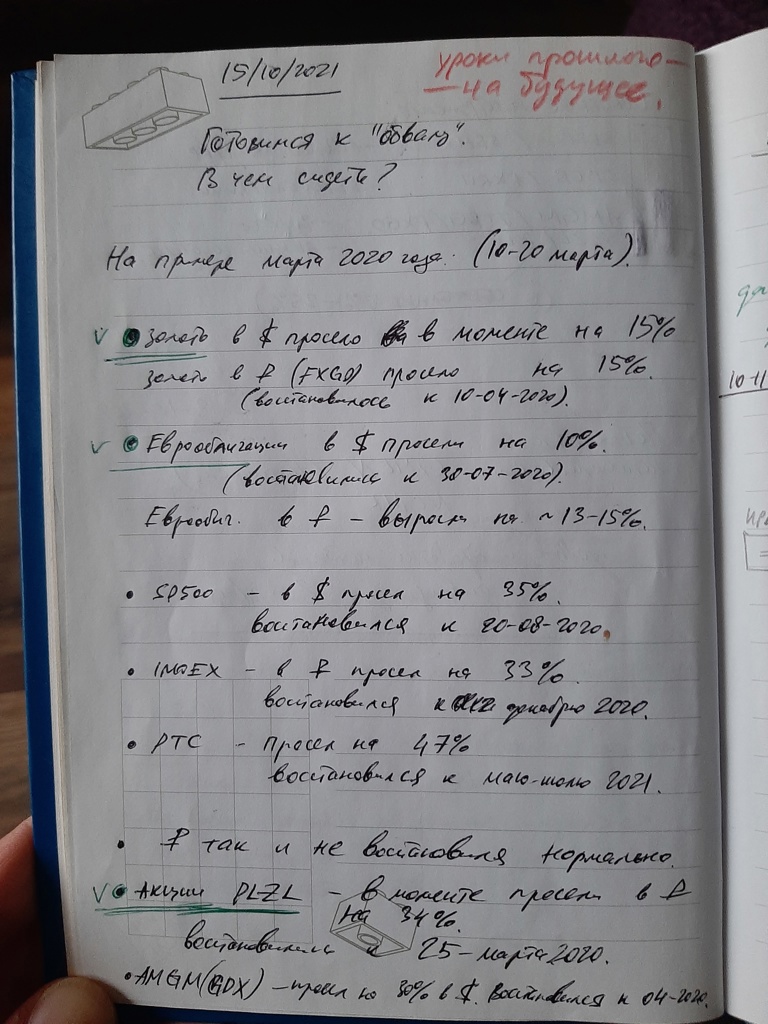 15/10/2021
уроки прошлого —
— на будущее.
Готовимся к "обвалу".
В чем сидеть?
На примере марта 2020 года: (10-20 марта).
V • Золото в $ просело в моменте на 15%
Золото в ₽ (FXGD) просело на 15%.
(востановилось к 10-04-2020).
V • Еврооблигации в $ просели на 10%.
(востановились к 30-07-2020).
Еврообиг. в ₽ - выросли на ~13-15%.
• SP500 - в $ просел на 35%.
востановился к 20-08-2020.
• IMOEX - в ₽ просел на 33%.
востановился к декабрю 2020.
• РТС - просел на 47%
восстановился к маю-июлю 2021.
• ₽ так и не востановился нормально.
V • Акции PLZL - в моменте просели в ₽
на 34%.
востановились к 25-марта 2020.
• AMGM(GDX) - просел на 30% в $. Востановился к 04-2020.
10-11